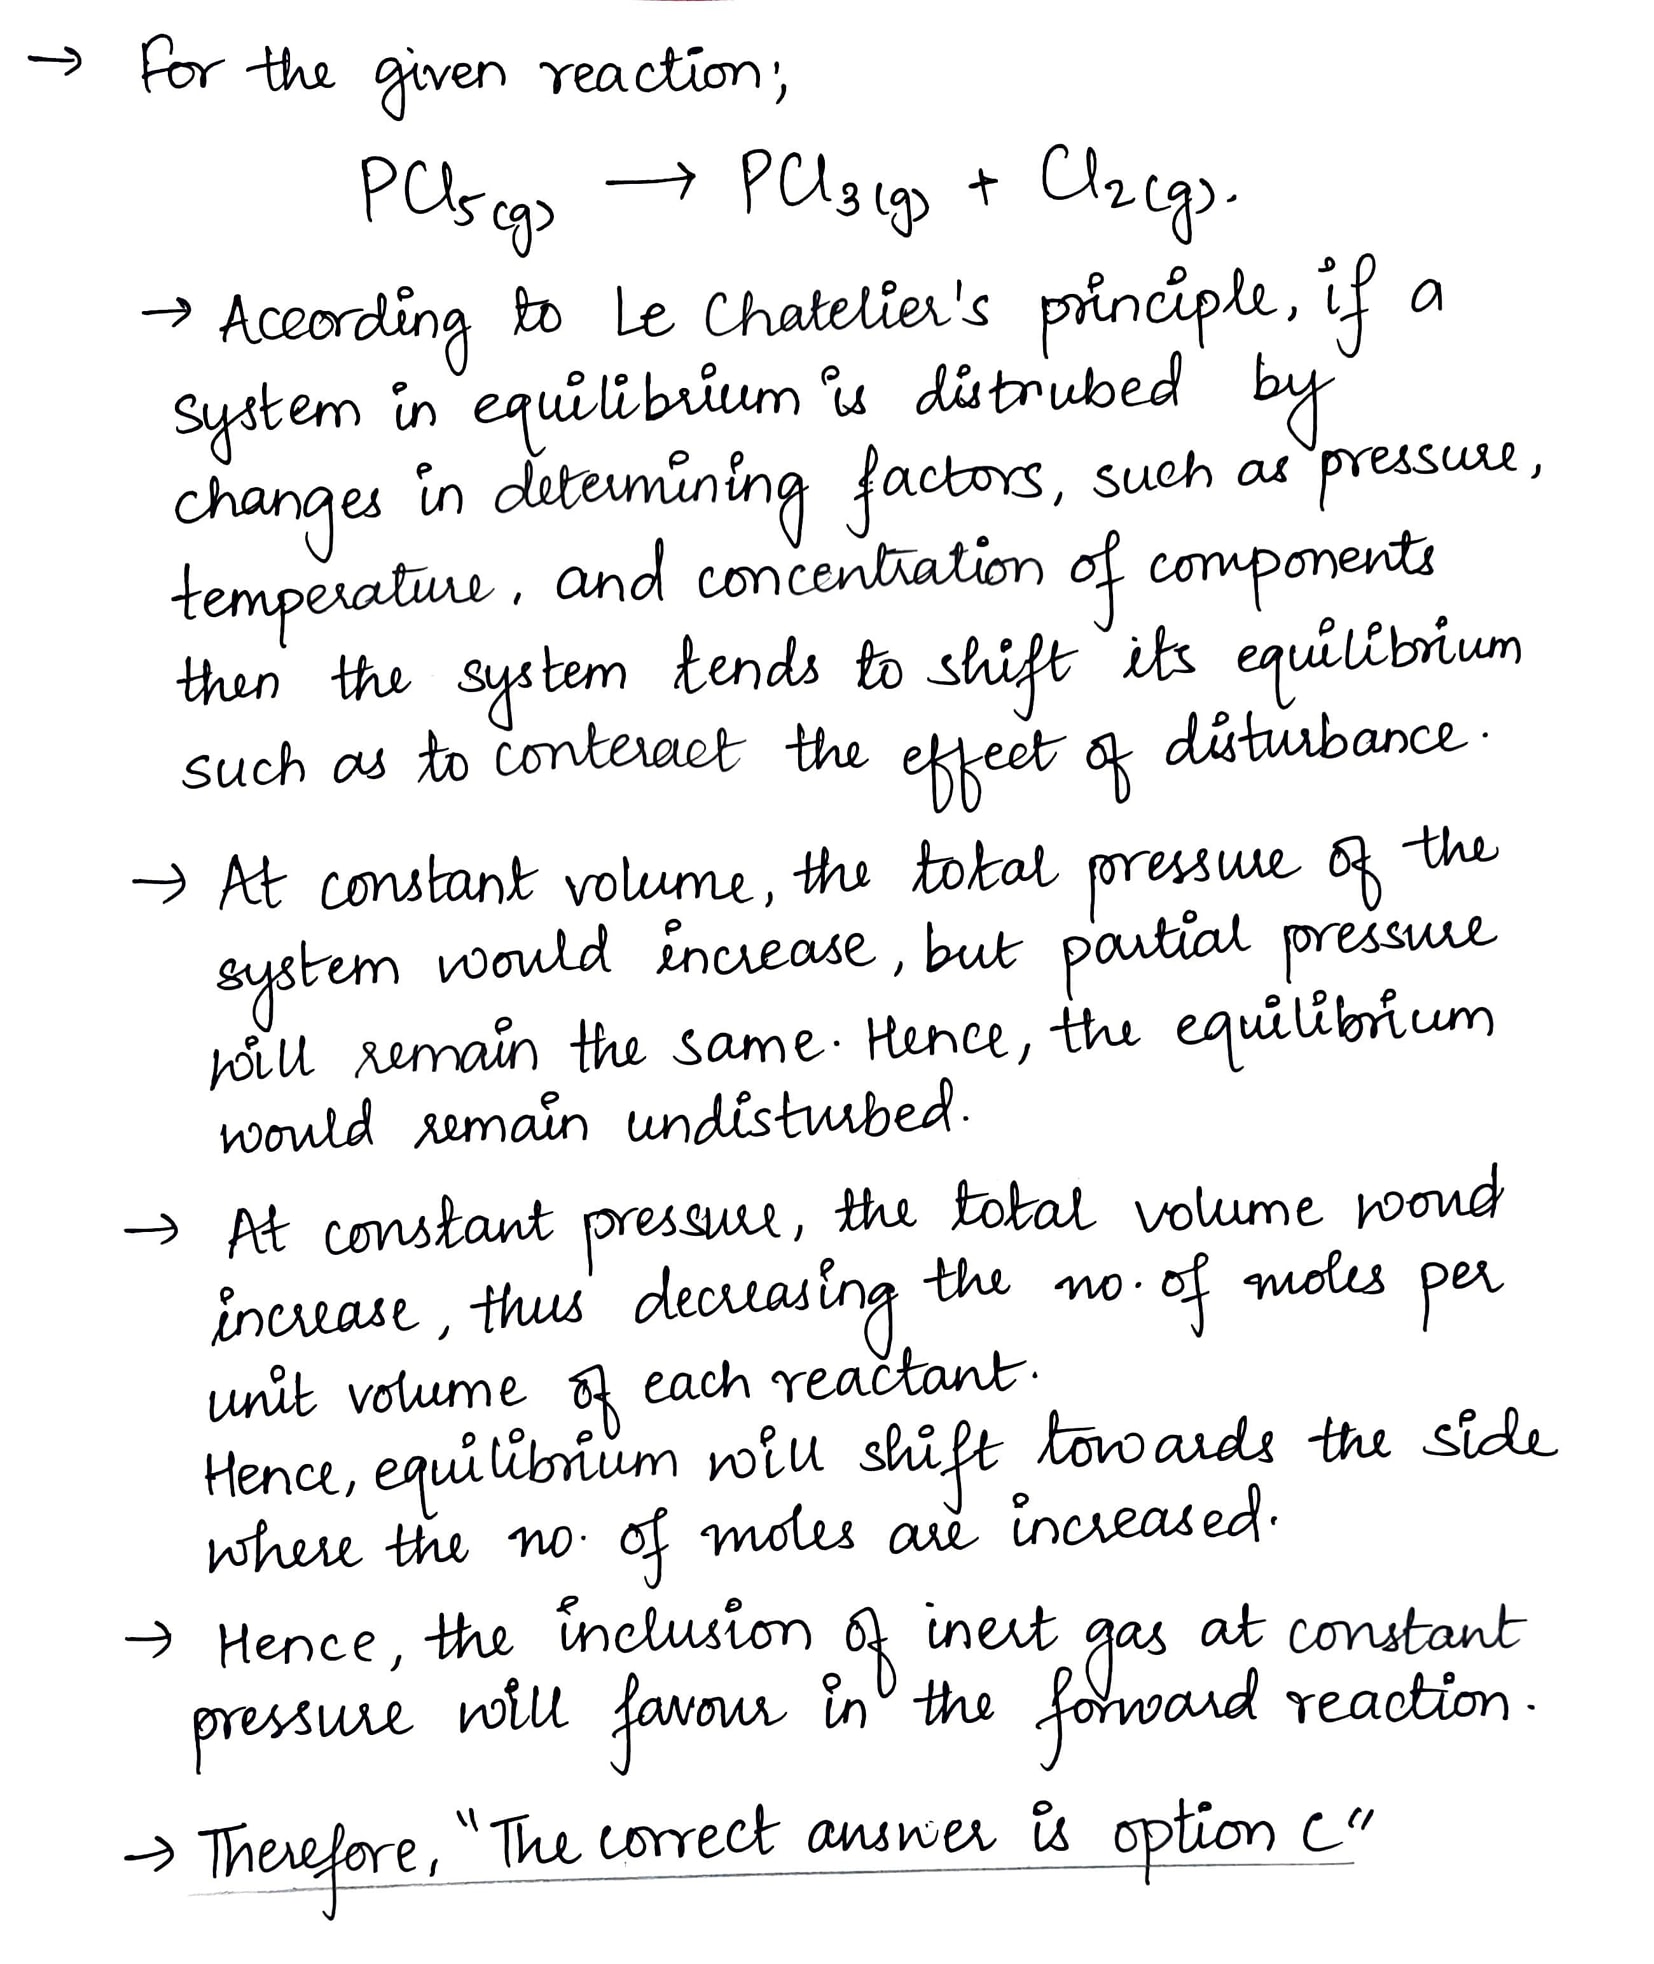 → For the given reaction;
PCl₅(g) → PCl₃(g) + Cl₂(g).
→ According to Le Chatelier's principle, if a
system in equilibrium is distrubed by
changes in determining factors, such as pressure,
temperature, and concentration of components
then the system tends to shift its equilibrium
such as to conteract the effect of disturbance.
→ At constant volume, the total pressure of the
system would increase, but partial pressure
will remain the same. Hence, the equilibrium
would remain undisturbed.
→ At constant pressure, the total volume woud
increase, thus decreasing the no. of moles per
unit volume of each reactant.
Hence, equilibrium will shift towards the side
where the no. of moles are increased.
→ Hence, the inclusion of inert gas at constant
pressure will favour in the forward reaction.
→ Therefore, "The correct answer is option C"